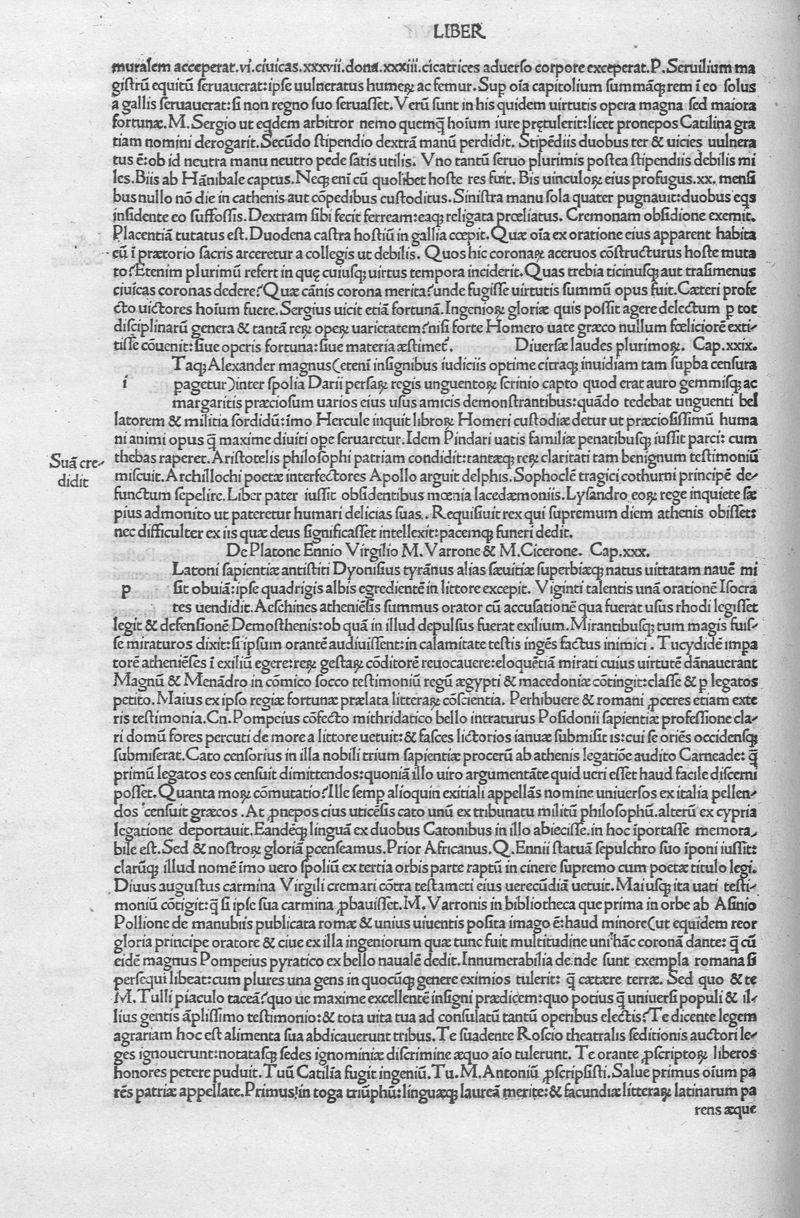 LIBER
muralem acceperat.vi.ciuicas.xxxvii.dona.xxxiii.cicatrices aduerso corpore exceperat.P.Seruilium ma
gistrū equitū seruauerat:ipse uulneratus humeꝝ ac femur. Sup oīa capitolium summāqꝫ rem ī eo solus
a gallis seruauerat:si non regno suo seruasset. Verū sunt in his quidem uirtutis opera magna sed maiora
fortunæ.M.Sergio ut eqdem arbitror nemo quemqꝫ hoīum iure prętulerit:licet pronepos Catilina gra
tiam nomini derogarit.Secūdo stipendio dextrā manū perdidit. Stipēdiis duobus ter & uicies uulnera
tus ē:ob id neutra manu neutro pede satis utilis. Vno tantū seruo plurimis postea stipendiis debilis mi
les.Biis ab Hānibale captus.Neqꝫ enī cū quolibet hoste res fuit. Bis uinculoꝝ eius profugus.xx.mensi
bus nullo nō die in cathenis aut cōpedibus custoditus.Sinistra manu sola quater pugnauit:duobus eqs
insidente eo suffossis.Dextram sibi fecit ferream:eaqꝫ religata prœliatus. Cremonam obsidione exemit.
Placentiā tutatus est.Duodena castra hostiū in gallia cœpit.Quæ oīa ex oratione eius apparent habita
cū ī prætorio sacris arceretur a collegis ut debilis. Quos hic coronaꝝ aceruos cōstructurus hoste muta
to?Etenim plurimū refert in quę cuiusqꝫ uirtus tempora inciderit.Quas trebia ticinusqꝫ aut trasimenus
ciuicas coronas dedere?Quæ cānis corona merita?unde fugisse uirtutis summū opus fuit.Cæteri profe
cto uictores hoīum fuere.Sergius uicit etiā fortunā.Ingenioꝝ gloriæ quis possit agere delectum p tot
disciplinarū genera & tantā reꝝ opeꝝ uarietatem?nisi forte Homero uate græco nullum fœliciorē exti-
tisse cōuenit:siue operis fortuna:siue materia æstimet᷑. Diuersæ laudes plurimoꝝ. Cap.xxix.
Taqꝫ Alexander magnus(etenī insignibus iudiciis optime citraqꝫ inuidiam tam supba censura
i pagetur)inter spolia Darii persaꝝ regis unguentoꝝ scrinio capto quod erat auro gemmisqꝫ ac
margaritis præciosum uarios eius usus amicis demonstrantibus:quādo tedebat unguenti bel
latorem & militia sordidū:īmo Hercule inquit libroꝝ Homeri custodiæ detur ut præciosissimū huma
ni animi opus q̄ maxime diuiti ope seruaretur.Idem Pindari uatis familiæ penatibusqꝫ iussit parci: cum
thebas raperet.Aristotelis philosophi patriam condidit:tantæqꝫ reꝝ claritati tam benignum testimoniū
Suā cre-
didit
miscuit.Archillochi poetæ interfectores Apollo arguit delphis.Sophoclē tragici cothurni principē de-
functum sepelire.Liber pater iussit obsidentibus mœnia lacedæmoniis.Lysandro eoꝝ rege inquiete sæ
pius admonito ut pateretur humari delicias suas. Requisiuit rex qui supremum diem athenis obisset:
nec difficulter ex iis quæ deus significasset intellexit:pacemqꝫ funeri dedit.
De Platone Ennio Virgilio M.Varrone & M.Cicerone. Cap.xxx.
Latoni sapientiæ antistiti Dyonisius tyrānus alias sæuitiæ superbiæqꝫ natus uittatam nauē mi
p sit obuiā:ipse quadrigis albis egredientē in littore excepit. Viginti talentis unā orationē Isocra
tes uendidit.Aeschines atheniēsis summus orator cū accusationē qua fuerat usus rhodi legisset
legit & defensionē Demosthenis:ob quā in illud depulsus fuerat exilium.Mirantibusqꝫ tum magis fuis-
se miraturos dixit:si ipsum orantē audiuissent:in calamitate testis ingēs factus inimici. Tucydidē impa
torē atheniēses ī exiliū egere:reꝝ gestaꝝ cōditorē reuocauere:eloquētiā mirati cuius uirtutē dānauerant
Magnū & Menādro in cōmico socco testimoniū regū ægypti & macedoniæ cōtingit:classe & p legatos
petito.Maius ex ipso regiæ fortunæ prælata litteraꝝ cōscientia. Perhibuere & romani ꝓceres etiam exte
ris testimonia.Cn.Pompeius cōfecto mithridatico bello intraturus Posidonii sapientiæ professione cla-
ri domū fores percuti de more a littore uetuit:& fasces lictorios ianuæ submisit is:cui se oriēs occidensqꝫ
submiserat.Cato censorius in illa nobili trium sapientiæ procerū ab athenis legatiōe audito Carneade: q̄
primū legatos eos censuit dimittendos:quoniā illo uiro argumētāte quid ueri esset haud facile discerni
posset.Quanta moꝝ cōmutatio?Ille semp alioquin exitiali appellās nomine uniuersos ex italia pellen-
dos censuit græcos .At ꝓnepos eius uticēsis cato unū ex tribunatu militū philosophū.alterū ex cypria
legatione deportauit.Eandēqꝫ linguā ex duobus Catonibus in illo abiecisse.in hoc īportasse memora,
bile est.Sed & nostroꝝ gloriā pcenseamus.Prior Africanus.Q.Ennii statuā sepulchro suo īponi iussit:
clarūqꝫ illud nomē īmo uero spoliū ex tertia orbis parte raptū in cinere supremo cum poetæ titulo legi.
Diuus augustus carmina Virgili cremari cōtra testamēti eius uerecūdiā uetuit.Maiusqꝫ ita uati testi-
moniū cōtigit:q̄ si ipse sua carmina ꝓbauisset.M.Varronis in bibliotheca que prima in orbe ab Asinio
Pollione de manubiis publicata romæ & unius uiuentis posita imago ē:haud minore(ut equidem reor
gloria principe oratore & ciue ex illa ingeniorum quæ tunc fuit multitudine uni hāc coronā dante: q̄ cū
eidē magnus Pompeius pyratico ex bello naualē dedit.Innumerabilia deinde sunt exempla romana si
persequi libeat:cum plures una gens in quocūqꝫ genere eximios tulerit: q̄ cætære terræ. Sed quo & te
M.Tulli piaculo taceā?quo ue maxime excellentē insigni prædicem:quo potius q̄ uniuersi populi & il-
lius gentis āplissimo testimonio:& tota uita tua ad consulatū tantū operibus electis?Te dicente legem
agrariam hoc est alimenta sua abdicauerunt tribus.Te suadente Roscio theatralis seditionis auctori le-
ges ignouerunt:notatasqꝫ sedes ignominiæ discrimine æquo aīo tulerunt. Te orante ꝓscriptoꝝ liberos
honores petere puduit.Tuū Catilīa fugit ingeniū.Tu.M.Antoniū ꝓscripsisti.Salue primus oīum pa
rēs patriæ appellate.Primus in toga triūphū:linguæqꝫ laureā merite:& facundiæ litteraꝝ latinarum pa
rens æque